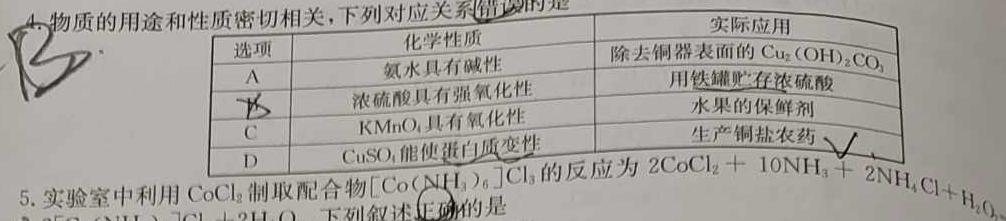 4.物质的用途和性质密切相关,下列对应关系错误的是
选项 化学性质 实际应用
A 氨水具有碱性 除去铜器表面的 Cu₂(OH)₂CO₃
浓硫酸具有强氧化性 用铁罐贮存浓硫酸
C KMnO₄具有氧化性 水果的保鲜剂
D CuSO₄能使蛋白质变性 生产铜盐农药
B
5.实验室中利用 CoCl₂ 制取配合物[Co(NH₃)₆]Cl₃的反应为 2CoCl₂ + 10NH₃ + 2NH₄Cl+H₂O₂
下列叙述正确的是